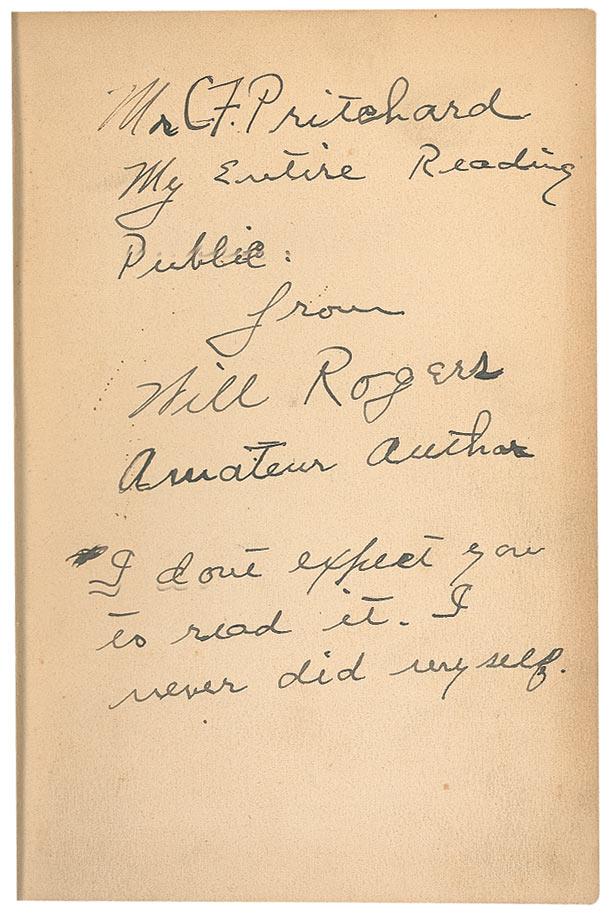 Mr C. F. Pritchard
My Entire Reading
Public:
from
Will Rogers
Amateur Author
*I dont expect you
to read it. I
never did myself.